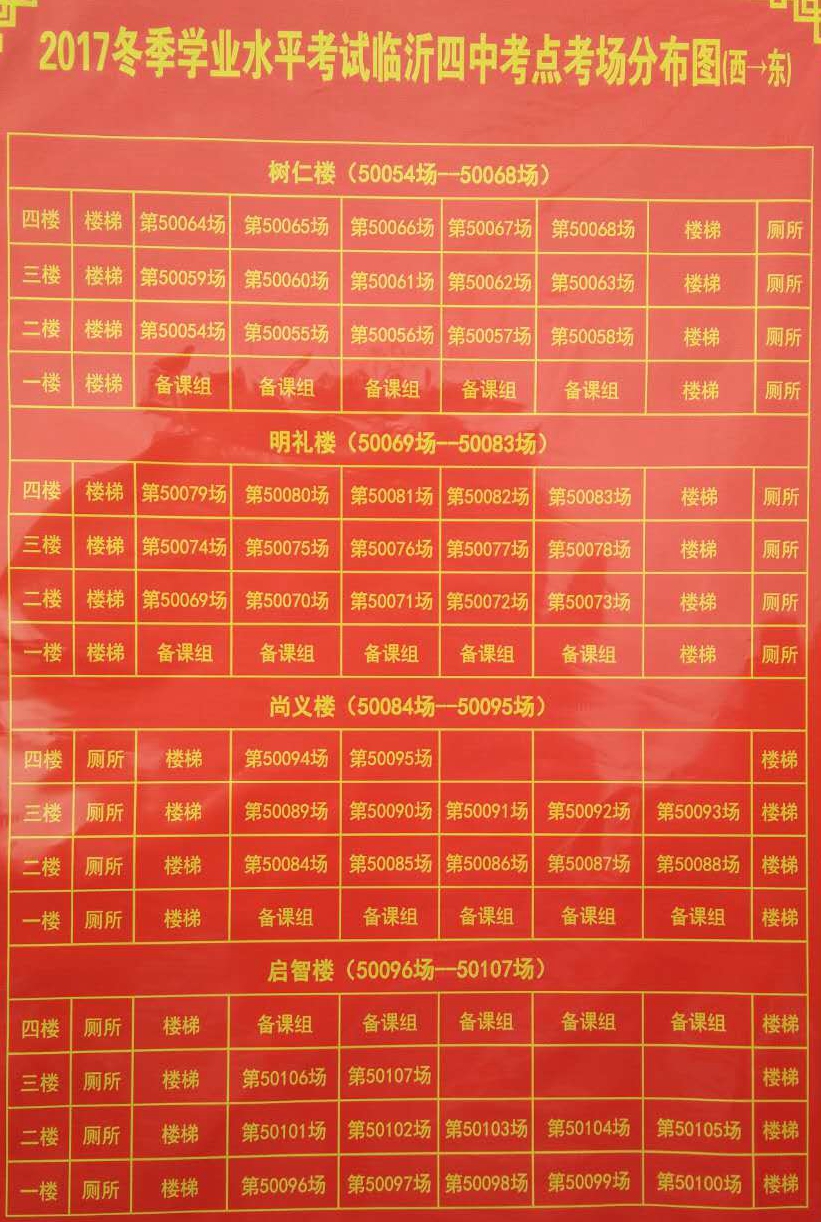 2017冬季学业水平考试临沂四中考点考场分布图(西→东)
树仁楼（50054场--50068场）
四楼 楼梯 第50064场 第50065场 第50066场 第50067场 第50068场 楼梯 厕所
三楼 楼梯 第50059场 第50060场 第50061场 第50062场 第50063场 楼梯 厕所
二楼 楼梯 第50054场 第50055场 第50056场 第50057场 第50058场 楼梯 厕所
一楼 楼梯 备课组 备课组 备课组 备课组 备课组 楼梯 厕所
明礼楼（50069场--50083场）
四楼 楼梯 第50079场 第50080场 第50081场 第50082场 第50083场 楼梯 厕所
三楼 楼梯 第50074场 第50075场 第50076场 第50077场 第50078场 楼梯 厕所
二楼 楼梯 第50069场 第50070场 第50071场 第50072场 第50073场 楼梯 厕所
一楼 楼梯 备课组 备课组 备课组 备课组 备课组 楼梯 厕所
尚义楼（50084场--50095场）
四楼 厕所 楼梯 第50094场 第50095场 楼梯
三楼 厕所 楼梯 第50089场 第50090场 第50091场 第50092场 第50093场 楼梯
二楼 厕所 楼梯 第50084场 第50085场 第50086场 第50087场 第50088场 楼梯
一楼 厕所 楼梯 备课组 备课组 备课组 备课组 备课组 楼梯
启智楼（50096场--50107场）
四楼 厕所 楼梯 备课组 备课组 备课组 备课组 备课组 楼梯
三楼 厕所 楼梯 第50106场 第50107场 楼梯
二楼 厕所 楼梯 第50101场 第50102场 第50103场 第50104场 第50105场 楼梯
一楼 厕所 楼梯 第50096场 第50097场 第50098场 第50099场 第50100场 楼梯